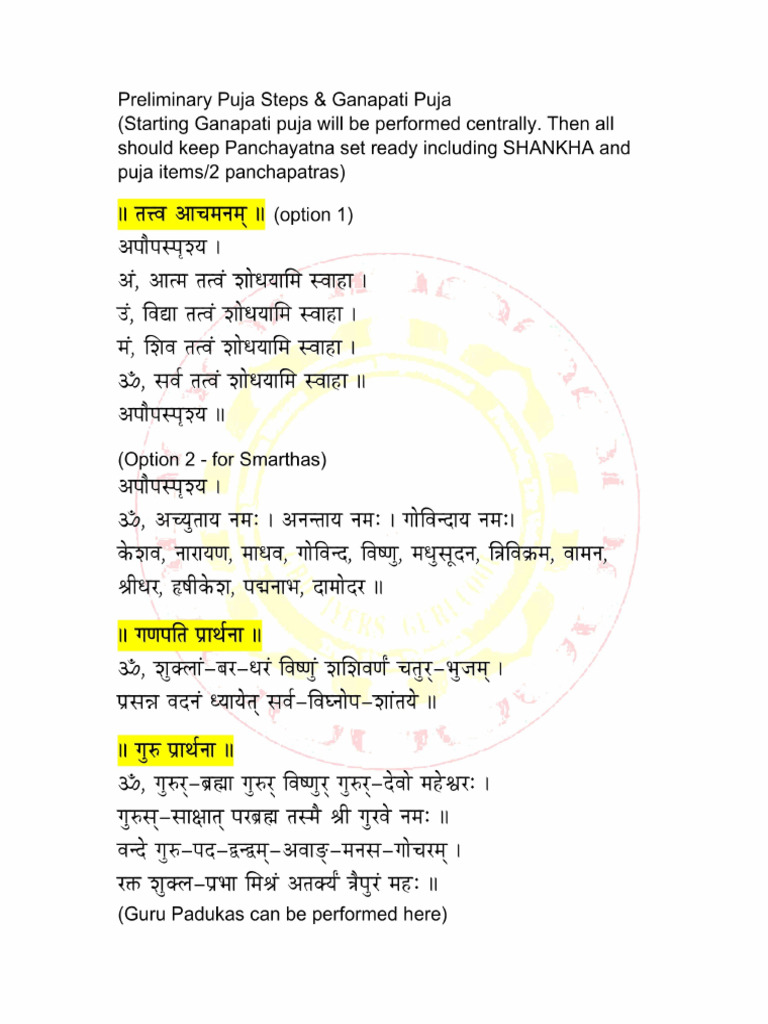 Preliminary Puja Steps & Ganapati Puja
(Starting Ganapati puja will be performed centrally. Then all
should keep Panchayatna set ready including SHANKHA and
puja items/2 panchapatras)
॥ तत्त्व आचमनम् ॥ (option 1)
अपौपस्पृश्य ।
अं, आत्म तत्वं शोधयामि स्वाहा ।
उं, विद्या तत्वं शोधयामि स्वाहा ।
मं, शिव तत्वं शोधयामि स्वाहा ।
ॐ, सर्व तत्वं शोधयामि स्वाहा ॥
अपौपस्पृश्य ॥
(Option 2 - for Smarthas)
अपौपस्पृश्य ।
ॐ, अच्युताय नमः । अनन्ताय नमः । गोविन्दाय नमः।
केशव, नारायण, माधव, गोविन्द, विष्णु, मधुसूदन, त्रिविक्रम, वामन,
श्रीधर, हृषीकेश, पद्मनाभ, दामोदर ॥
॥ गणपति प्रार्थना ॥
ॐ, शुक्लां-बर-धरं विष्णुं शशिवर्णं चतुर्-भुजम् ।
प्रसन्न वदनं ध्यायेत् सर्व-विघ्नोप-शांतये ॥
॥ गुरु प्रार्थना ॥
ॐ, गुरुर्-ब्रह्मा गुरुर् विष्णुर् गुरुर्-देवो महेश्वरः ।
गुरुस्-साक्षात् परब्रह्म तस्मै श्री गुरवे नमः ॥
वन्दे गुरु-पद-द्वन्द्वम्-अवाङ्-मनस-गोचरम् ।
रक्त शुक्ल-प्रभा मिश्रं अतर्क्यं त्रैपुरं महः ॥
(Guru Padukas can be performed here)